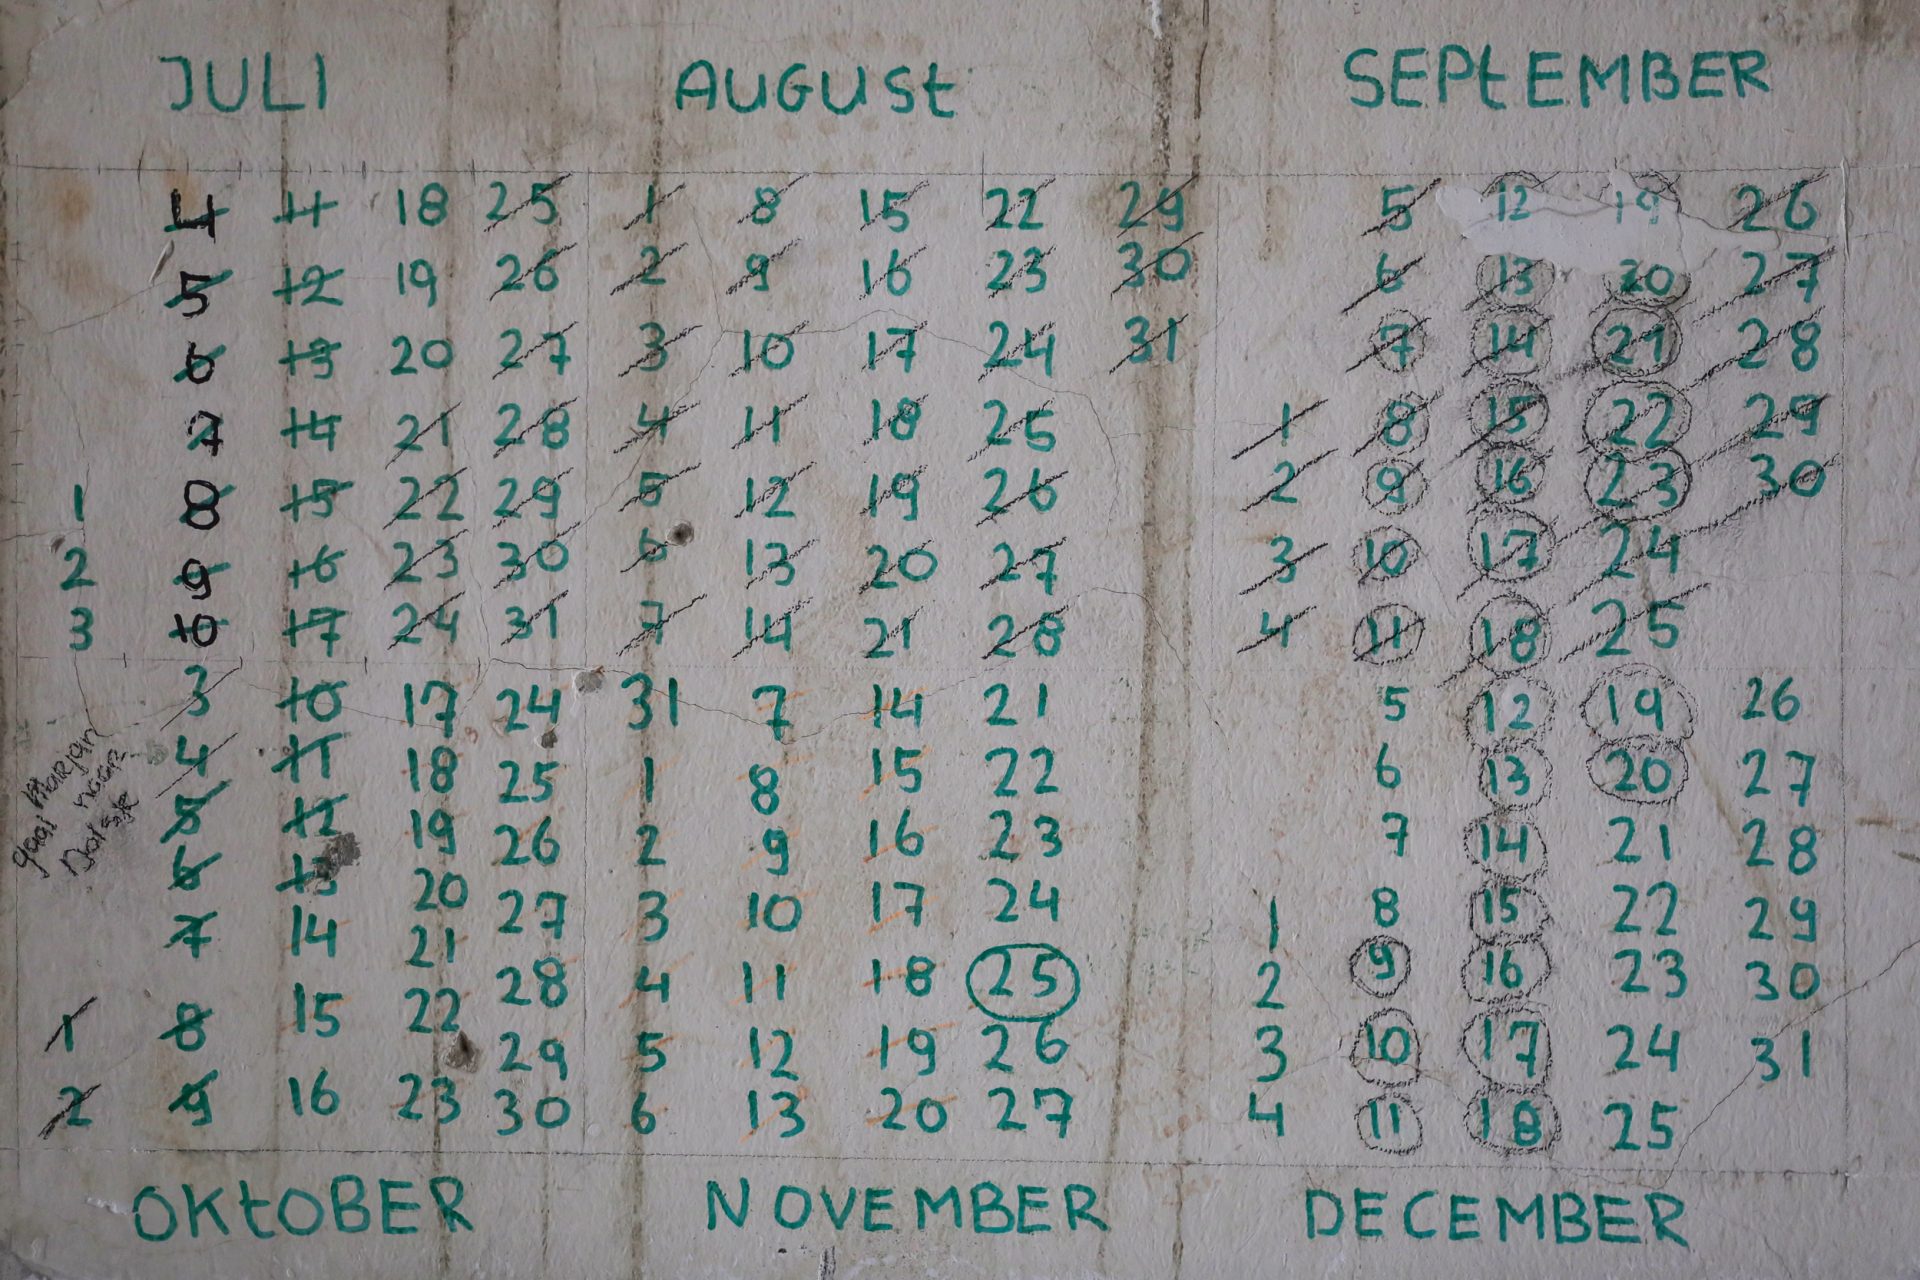 JULI AUGUSt SEPtEMBER
4 11 18 25 1 8 15 22 29 5 12 19 26
5 12 19 26 2 9 16 23 30 6 13 20 27
6 13 20 27 3 10 17 24 31 7 14 21 28
7 14 21 28 4 11 18 25 1 8 15 22 29
1 8 15 22 29 5 12 19 26 2 9 16 23 30
2 9 16 23 30 6 13 20 27 3 10 17 24
3 10 17 24 31 7 14 21 28 4 11 18 25
3 10 17 24 31 7 14 21 5 12 19 26
4 11 18 25 1 8 15 22 6 13 20 27
5 12 19 26 2 9 16 23 7 14 21 28
6 13 20 27 3 10 17 24 1 8 15 22 29
7 14 21 28 4 11 18 25 2 9 16 23 30
1 8 15 22 29 5 12 19 26 3 10 17 24 31
2 9 16 23 30 6 13 20 27 4 11 18 25
gaat Marjan
naar
OKtOBER NOVEMBER DECEMBER